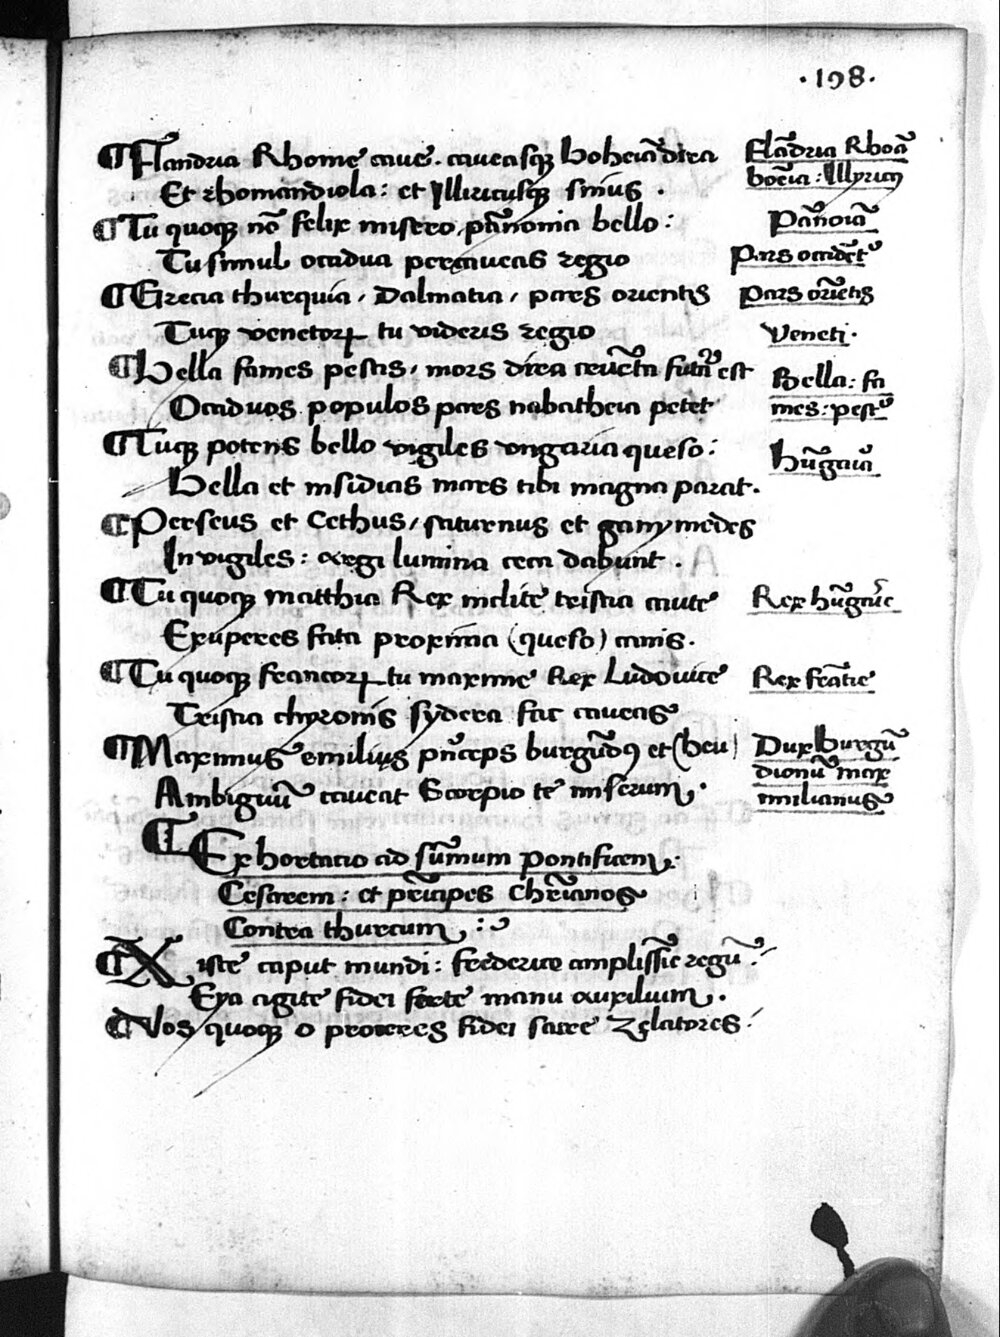 ·198·
Flandria Rhome caue. caueasq; bohemia dira
Et rhomandiola: et Illiricusq; sinus.
Tu quoq; nō felix misero, pānonia bello:
Tu simul occidua percaueas regio
Grecia thurquia, Dalmatia, pars orientis
Tuq; venetoꝝ tu videris regio
Bella fames pestis, mors dira cruēta futura est
Occiduos populos pars nabatheia petet
Tuq; potens bello vigiles vngaria queso:
Bella et insidias mars tibi magna parat.
Perseus et Cethus, saturnus et ganymedes
Invigiles: aegi lumina ceca dabunt.
Tu quoq; matthia Rex inclite tristia caute
Exuperes fata proxima (queso) canis.
Tu quoq; francoꝝ tu maxime Rex Ludouice
Tristia chyronis sydera fac caueas
Maximus emilius prīceps burgūdꝯ et (heu)
Ambiguū caueat Scorpio te miserum.
Exhortacio ad sūmum pontificem.
Cesarem: et prīcipes Chrīanos
Contra thurcum.
Xiste caput mundi: frederice amplissīe regū:
Eya agite fidei forte manu auxilium.
Vos quoq; o proceres fidei sacre Zelatores:
Flādria Rhoā
boēia: Illyricū
Pānoiā
Pars occidēt
Pars oriētis
Veneti.
Bella: fa
mes: pest
hūgaia
Rex hūgarie
Rex frācie
Dux burgū
dionū max
imilianus